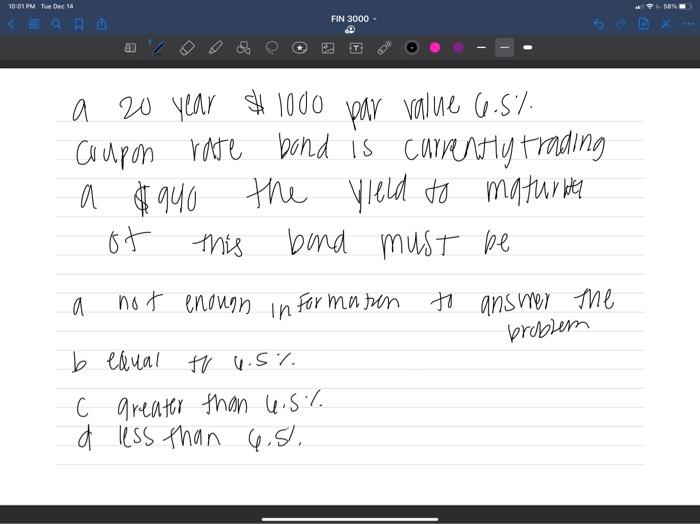 10:01 PM Tue Dec 14
58%
FIN 3000
a 20 year $1000 par value 6.5%
coupon rate bond is currently trading
a $940 the yield to maturity
of this bond must be
a not enough information to answer the
problem
b equal to 6.5%
c greater than 6.5%
d less than 6.5%